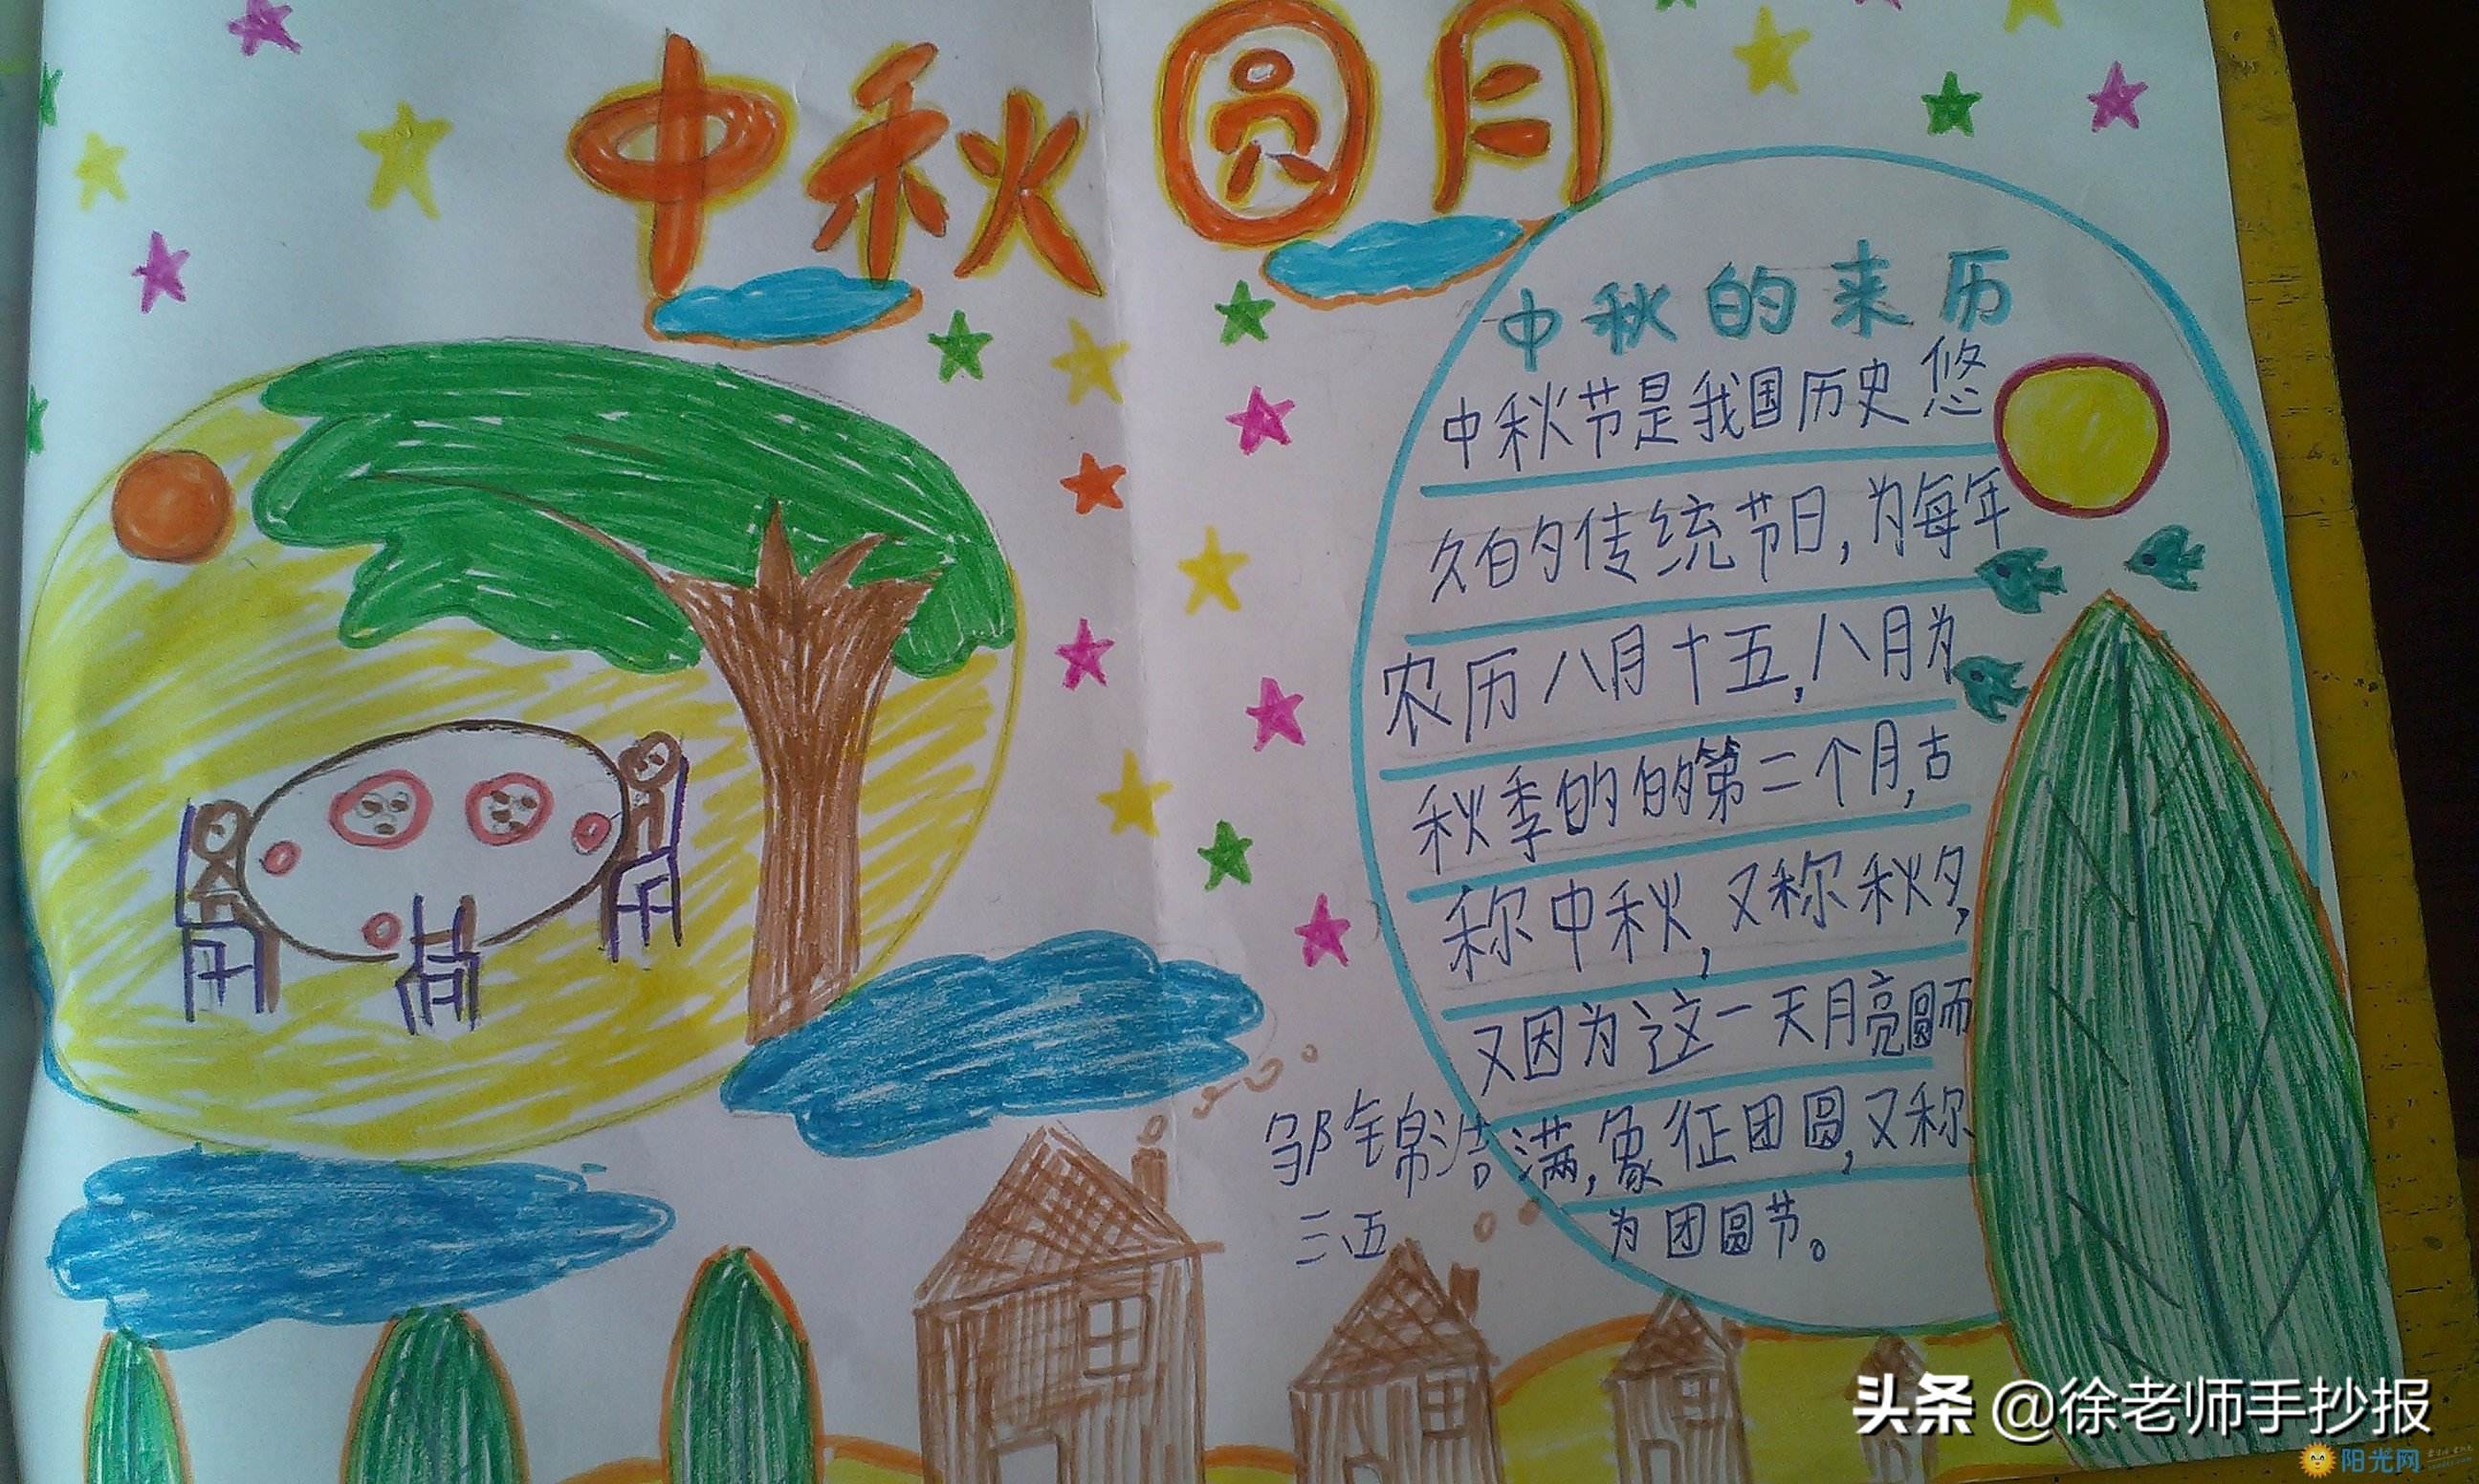 中秋圆月
中秋的来历
中秋节是我国历史悠
久的传统节日,为每年
农历八月十五,八月为
秋季的的第二个月,古
称中秋,又称秋夕,
又因为这一天月亮圆而
满,象征团圆,又称
为团圆节。
邹锦浩
三五
头条 @徐老师手抄报
阳光网